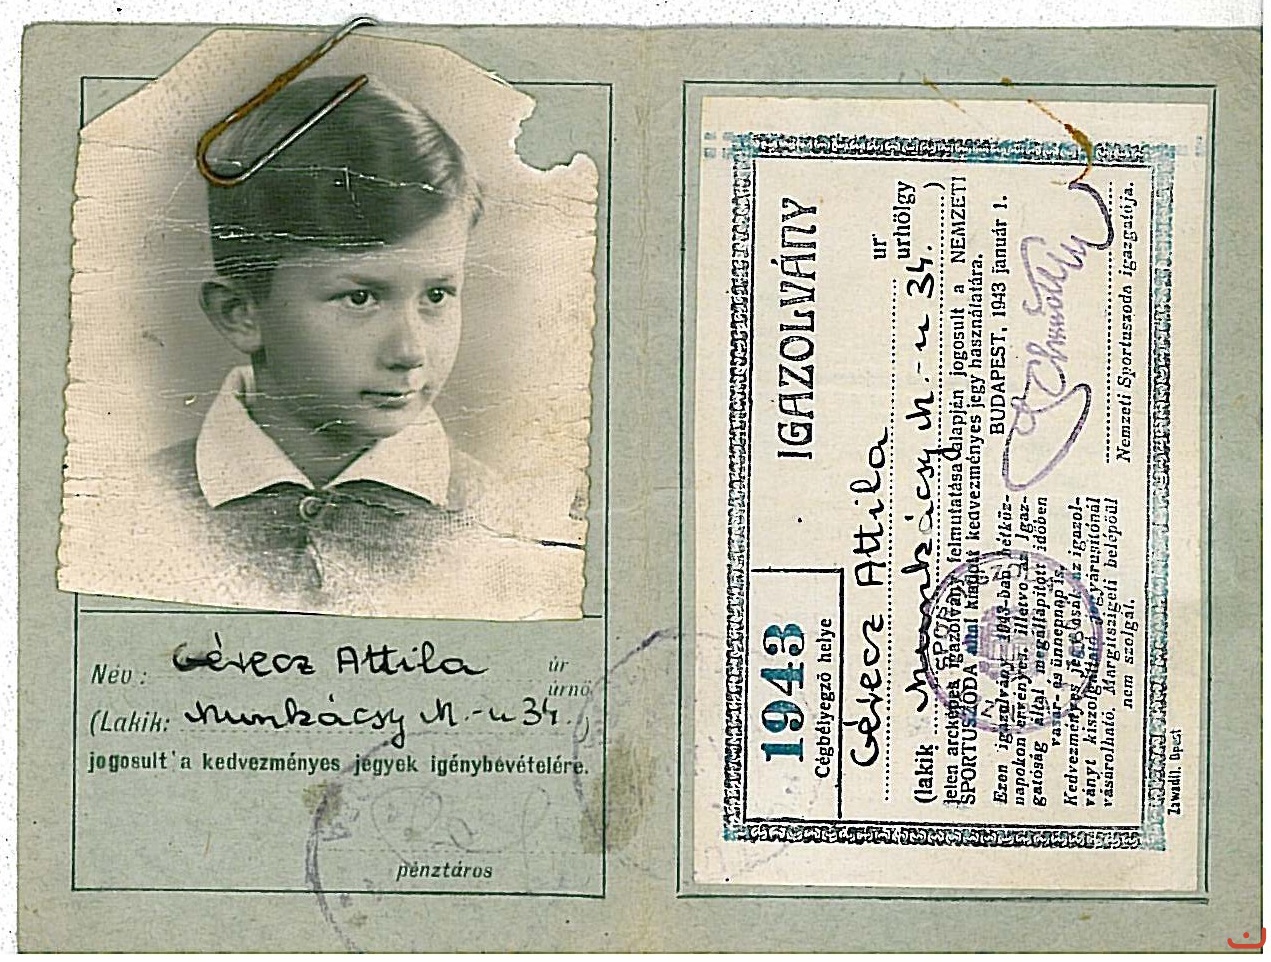 Név: Gérecz Attila úr
úrnő
(Lakik: Munkácsy M.-u 34.)
jogosult a kedvezményes jegyek igénybevételére.
pénztáros
1943
Cégbélyegző helye
IGAZOLVÁNY
Gérecz Attila ur
urhölgy
(lakik Munkácsy M.-u 34. )
jelen arcképes igazolvány felmutatása alapján jogosult a NEMZETI
SPORTUSZODA által kiadott kedvezményes jegy használatára.
BUDAPEST, 1943 január 1.
Nemzeti Sportuszoda igazgatója.
Ezen igazolvány 1943-ban hétköz-
napokon érvényes, illetve az Igaz-
gatóság által megállapított időben
vasár- és ünnepnap is.
Kedvezményes jegy csak az igazol-
ványt kiszolgáltató jegyárusítónál
vásárolható. Margitszigeti belépőül
nem szolgál.
Zawadil. Bpest